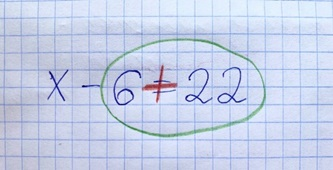 x - 6 + 22